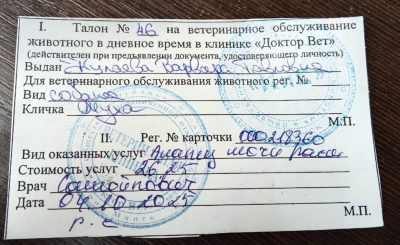 I. Талон № 46 на ветеринарное обслуживание
животного в дневное время в клинике «Доктор Вет»
(действителен при предъявлении документа, удостоверяющего личность)
Выдан Варвара Павловна
Для ветеринарного обслуживания животного рег. №
Вид собака
Кличка Муха
М.П.
II. Рег. № карточки 000218360
Вид оказанных услуг Анализ мочи
Стоимость услуг 26.25
Врач
Дата 04.10.2025
М.П.